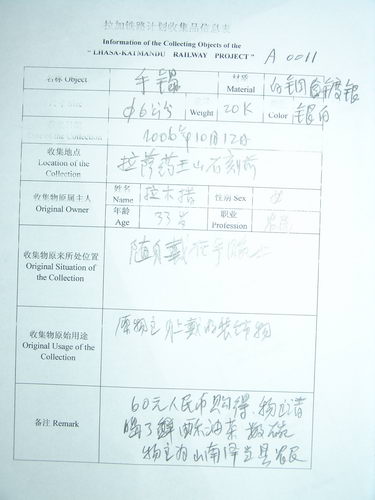 拉加铁路计划收集品信息表
Information of the Collecting Objects of the
"LHASA-KATMANDU RAILWAY PROJECT" A 0011
名称 Object 手镯 材质 Material 白铜镀银
φ6 Weight 20K Color 银白
of the Collection 2006年10月12日
收集地点 Location of the Collection 拉萨药王山石刻
收集物原属主人 Original Owner 姓名 Name 拉木措 性别 Sex 女
年龄 Age 33岁 职业 Profession 农民
收集物原来所处位置 Original Situation of the Collection 随身戴在手腕上
收集物原始用途 Original Usage of the Collection 原物主 戴的装饰物
备注 Remark 60元人民币购得.物主请
喝了 酥油茶
物主为山南泽当县农民